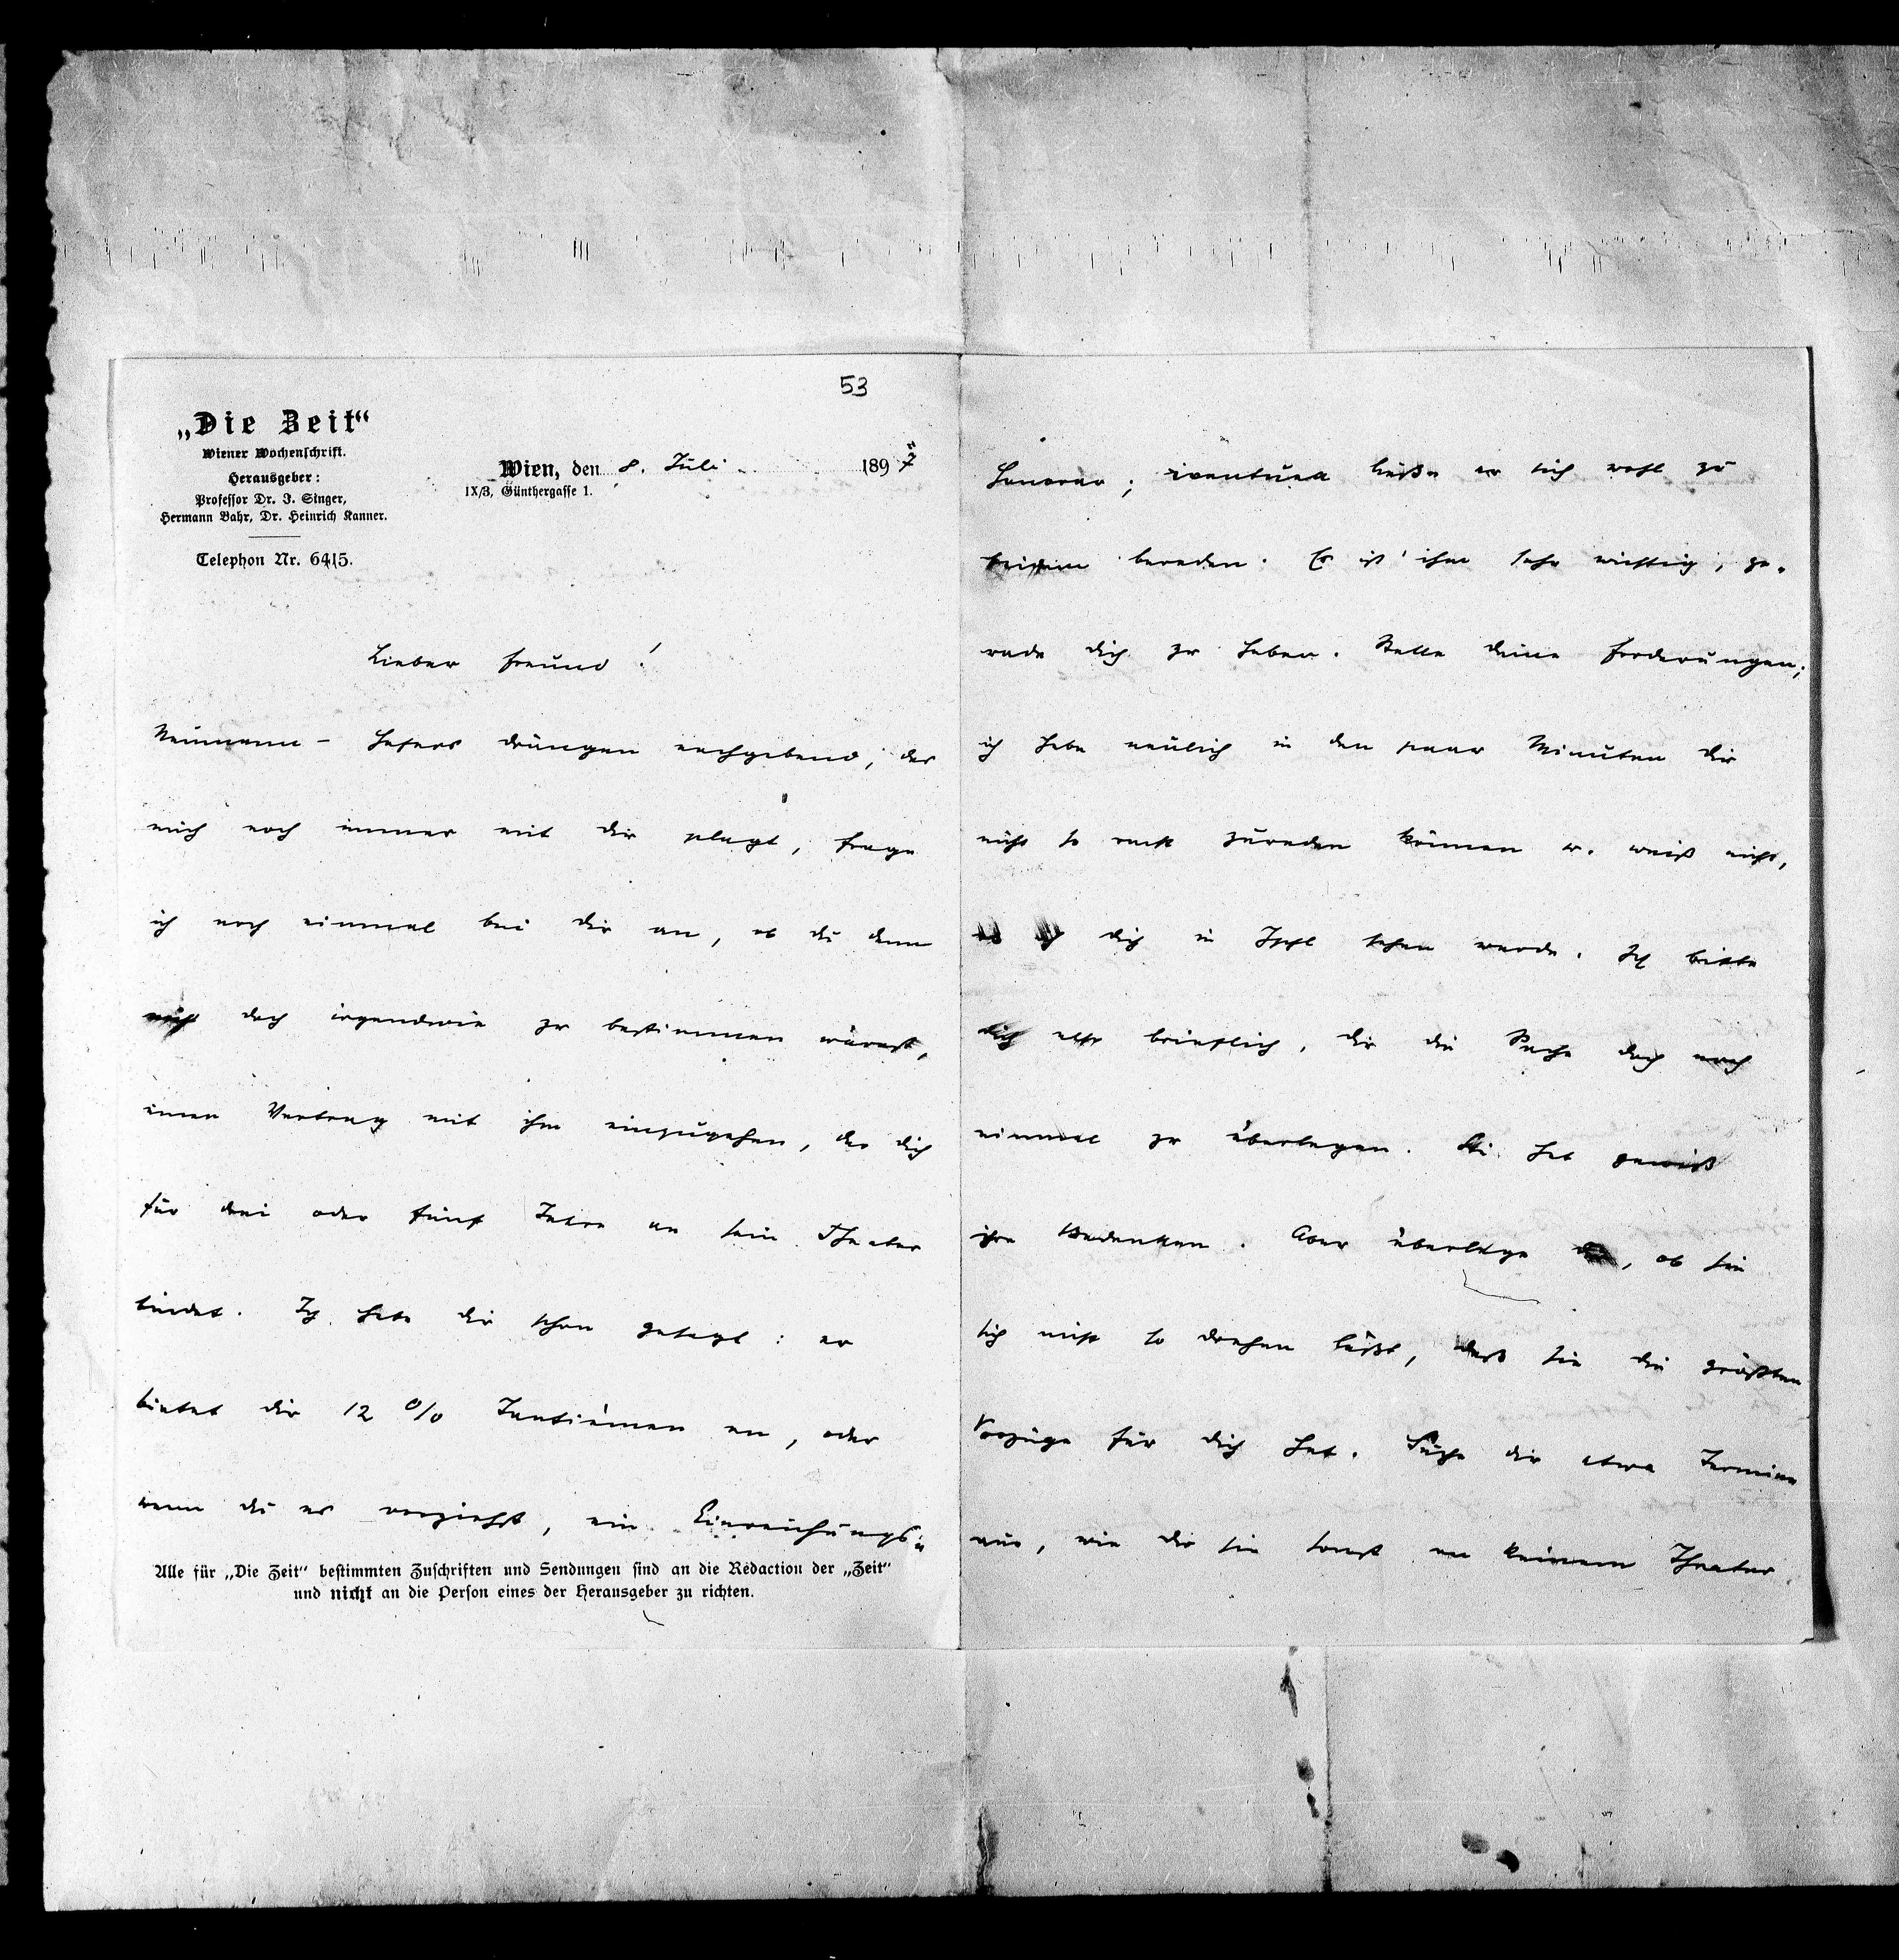 53
„Die Zeit“
Wiener Wochenschrift.
Herausgeber:
Professor Dr. I. Singer,
Hermann Bahr, Dr. Heinrich Kanner.
Telephon Nr. 6415.
Wien, den 8. Juli 1897
IX/3, Günthergasse 1.
Lieber Freund!
Neumann-Hofers Drängen nachgebend, der
mich noch immer mit dir plagt, frage
ich noch einmal bei dir an, ob du denn
nicht doch irgendwie zu bestimmen wärest,
einen Vertrag mit ihm einzugehen, der dich
für drei oder fünf Jahre an sein Theater
bindet. Ich habe dir schon gesagt: er
bietet dir 12 % Tantièmen an, oder
wenn du es vorziehst, ein Einreichungs-
Alle für „Die Zeit“ bestimmten Zuschriften und Sendungen sind an die Redaction der „Zeit“
und nicht an die Person eines der Herausgeber zu richten.
Honorar; eventuell ließe er sich wohl zu
beidem bereden. Es ist ihm sehr wichtig, ge-
rade dich zu haben. Stelle deine Forderungen;
ich habe neulich in den paar Minuten dir
nicht so recht zureden können u. weiß nicht,
ob ich dich in Ischl sehen werde. Ich bitte
dich also brieflich, dir die Sache doch noch
einmal zu überlegen. Sie hat gewiß
ihre Bedenken. Aber überlege dir, ob sie
sich nicht so drehen läßt, daß sie die größten
Vorzüge für dich hat. Suche dir etwa Termine
aus, wie du sie sonst an keinem Theater